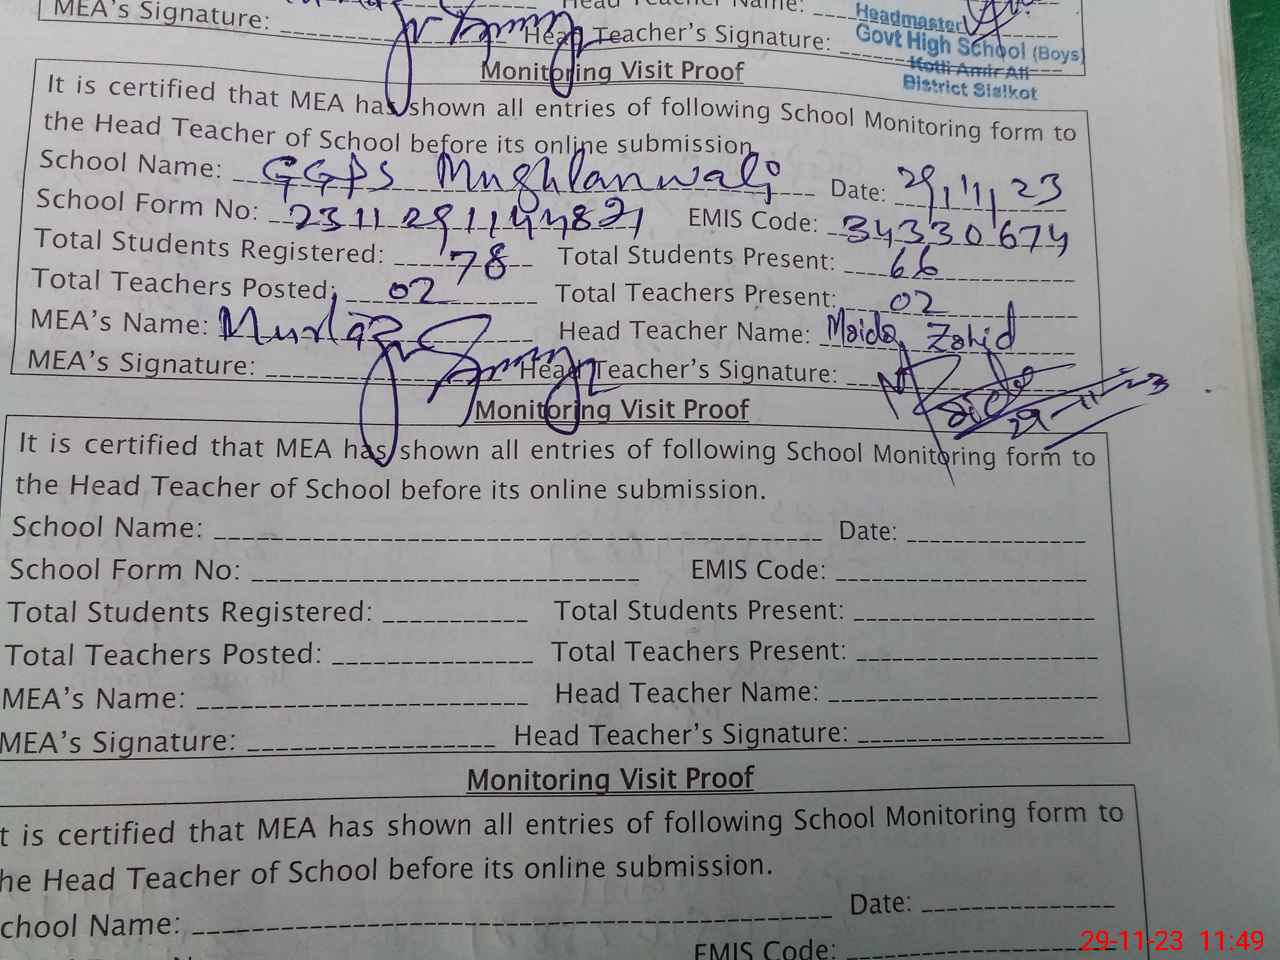 MEA's Signature: Head Teacher's Signature:
Head Teacher Name:
Headmaster
Govt High School (Boys)
Kotli Amir Ali
District Sialkot
Monitoring Visit Proof
It is certified that MEA has shown all entries of following School Monitoring form to
the Head Teacher of School before its online submission.
School Name: GGPS Mughlanwali Date: 29/11/23
School Form No: EMIS Code: 34330674
Total Students Registered: 78 Total Students Present: 66
Total Teachers Posted: 02 Total Teachers Present: 02
MEA's Name: Head Teacher Name: Maida Zahid
MEA's Signature: Head Teacher's Signature:
29-11-23
Monitoring Visit Proof
It is certified that MEA has shown all entries of following School Monitoring form to
the Head Teacher of School before its online submission.
School Name: Date:
School Form No: EMIS Code:
Total Students Registered: Total Students Present:
Total Teachers Posted: Total Teachers Present:
MEA's Name: Head Teacher Name:
MEA's Signature: Head Teacher's Signature:
Monitoring Visit Proof
t is certified that MEA has shown all entries of following School Monitoring form to
he Head Teacher of School before its online submission.
chool Name: Date:
EMIS Code:
29-11-23 11:49